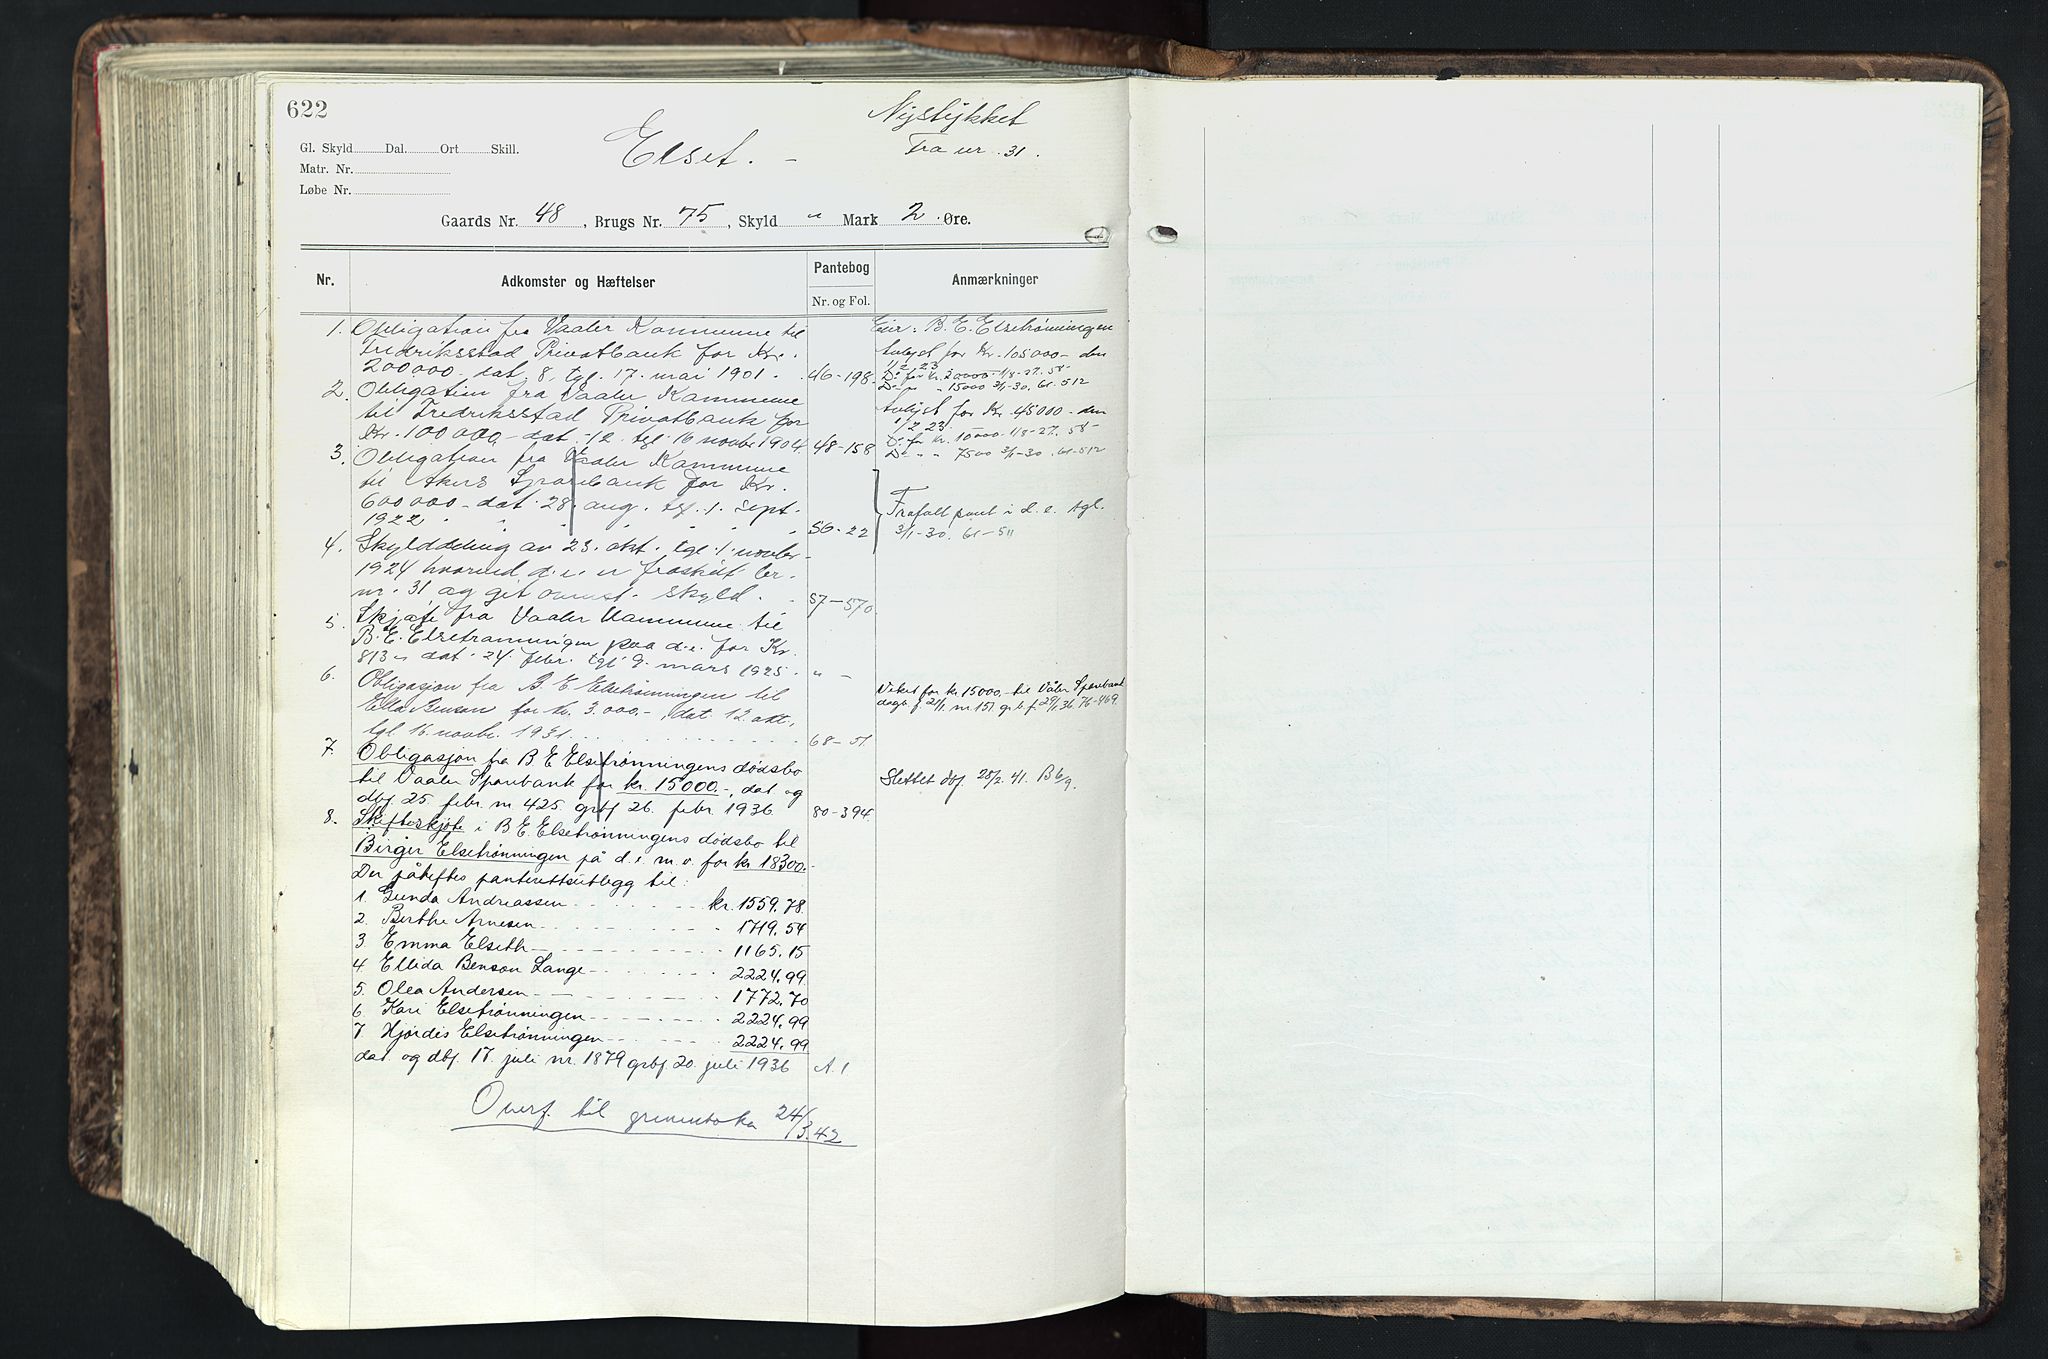 622
Nystykket
Elset. -
Fra nr. 31.
Gl. Skyld Dal. Ort Skill.
Matr. Nr.
Løbe Nr.
Gaards Nr. 48, Brugs Nr. 75, Skyld " Mark 2 Øre.
Nr. Adkomster og Hæftelser Pantebog Anmærkninger
Nr. og Fol.
1. Obligation fra Vaaler Kommune til
Fredriksstad Privatbank for Kr.
200000 - dat. 8, tgl. 17. mai 1901. 46-198
Eier: B. E. Elsetrønningen
Avlyst for Kr. 105000 - den
1/2 23
Do for Kr. 20000 - 1/3-27. 58-
Do " " 15000 3/1-30. 61-512
2. Obligation fra Vaaler Kommune
til Fredriksstad Privatbank for
Kr. 100000 - dat. 12. tgl. 16 novbr 1904. 48-158
Avlyst for Kr. 45000 - den
1/2 23.
Do for Kr. 10000 - 1/3-27. 58-
Do " " 7500 3/1-30. 61-512
3. Obligation fra Vaaler Kommune
til Akers Sparebank for Kr.
600000 - dat. 28. aug. tgl. 1. sept.
1922 " " " " " 56-22
Frafalt pant i d. e. tgl.
3/1-30. 61-511
4. Skylddeling av 23. okt. tgl. 1. novbr
1924 hvorved d. e. er fraskilt br.
nr. 31 og git ovennt. skyld. 57-570
5. Skjøte fra Vaaler Kommune til
B. E. Elsetrønningen paa d. e. for Kr.
813 - dat. 24. febr. tgl. 9. mars 1925. " -
6. Obligasjon fra B. E. Elsetrønningen til
Ella Benson for kr. 3.000.-, dat. 12. okt.,
tgl. 16. novbr. 1931. 68-51
Veket for kr. 15000.- til Våler Sparebank
dagb. f. 21/1 nr. 151 grb. f. 29/1 36. 76-469.
7. Obligasjon fra B E Elsetrønningens dødsbo
til Vaaler Sparebank for kr. 15000.-, dat og
dbf. 25. febr. nr 425 grbf 26. febr 1936 80-394.
Slettet dbf. 28/2. 41. B 6/9.
8. Skifteskjøte i B E. Elsetrønningens dødsbo til
Birger Elsetrønningen på d. e. m. v. for kr 18300.-
Der påheftes panterettsutlegg til:
1. Gunda Andreassen kr. 1559.78.
2. Berthe Arnesen 1719.54
3. Emma Elseth 1165.15
4. Ellida Benson Lange 2224.99
5. Olea Andersen 1772.70
6. Kari Elsetrønningen 2224.99
7. Hjørdis Elsetrønningen 2224.99
dat. og dbf. 17. juli nr. 1879 grbf. 20. juli 1936 A. 1
Overf. til grunnboka 24/3.42